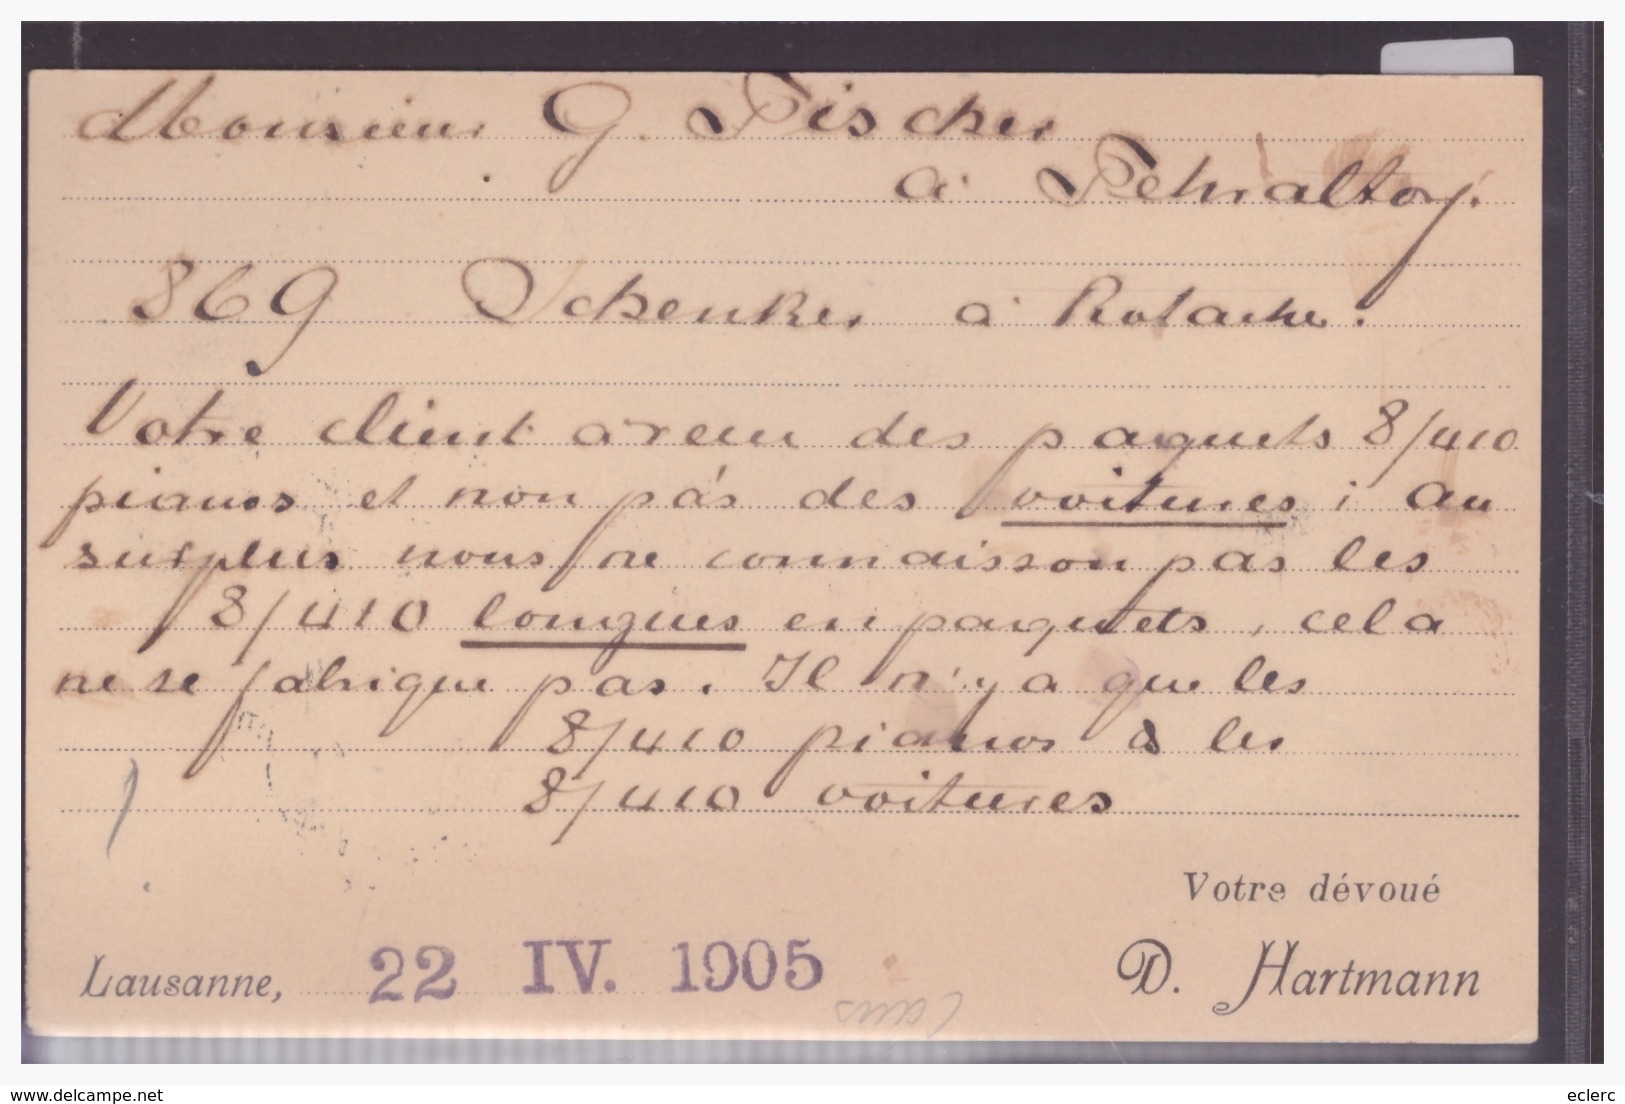 Monsieur G. Fischer
à Fehraltorf.
869 Schenker à Rotache.
Votre client a recu des paquets 8/410
pianos et non pas des voitures ; au
surplus nous ne connaisson pas les
8/410 longues en paquets, cela
ne se fabrique pas. Il n'y a que les
8/410 pianos & les
8/410 voitures
Votre dévoué
Lausanne, 22 IV. 1905 D. Hartmann
Laus
delcampe.net
eclerc